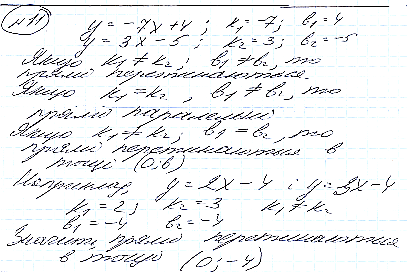 №11 y = -7x+4; k₁ = -7; b₁ = 4
y = 3x - 5; k₂ = 3; b₂ = -5
Якщо k₁ ≠ k₂; b₁ ≠ b₂, то
прямі перетинаються.
Якщо k₁ = k₂, b₁ ≠ b₂, то
прямі паралельні
Якщо k₁ ≠ k₂; b₁ = b₂, то
прямі перетинаються в
точці (0; b)
Наприклад, y = 2x - 4 і y = 3x - 4
k₁ = 2; k₂ = 3 k₁ ≠ k₂
b₁ = -4 b₂ = -4
Значить прямі перетинаються
в точці (0; -4)